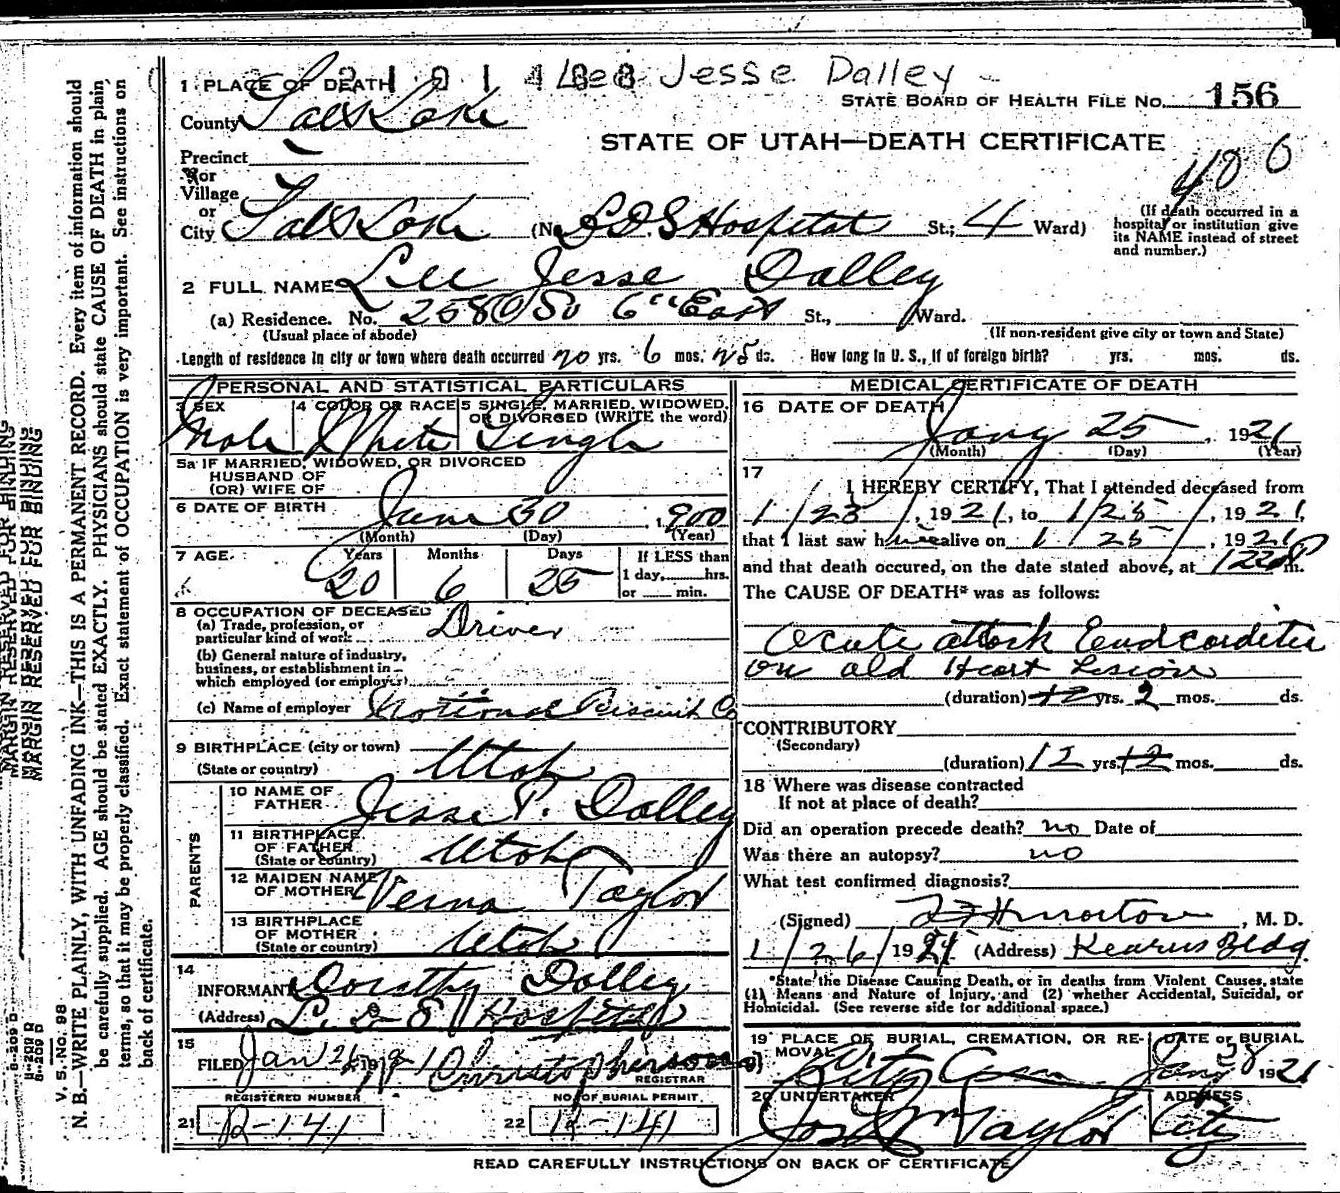 2101488 Lee Jesse Dalley
1 PLACE OF DEATH
STATE BOARD OF HEALTH FILE No. 156
County Salt Lake
STATE OF UTAH—DEATH CERTIFICATE
406
Precinct
or
Village
or
City Salt Lake (No. L.D.S Hospital St.; 4 Ward)
(If death occurred in a
hospital or institution give
its NAME instead of street
and number.)
2 FULL NAME Lee Jesse Dalley
(a) Residence. No. 2580 So 6" East St., Ward.
(Usual place of abode) (If non-resident give city or town and State)
Length of residence in city or town where death occurred 20 yrs. 6 mos. 25 ds. How long in U. S., if of foreign birth? yrs. mos. ds.
PERSONAL AND STATISTICAL PARTICULARS
3 SEX 4 COLOR OR RACE 5 SINGLE, MARRIED, WIDOWED,
OR DIVORCED (WRITE the word)
Male White Single
5a IF MARRIED, WIDOWED, OR DIVORCED
HUSBAND OF
(OR) WIFE OF
6 DATE OF BIRTH June 30, 1900
(Month) (Day) (Year)
7 AGE Years Months Days If LESS than
20 6 25 1 day, hrs.
or min.
8 OCCUPATION OF DECEASED
(a) Trade, profession, or
particular kind of work Driver
(b) General nature of industry,
business, or establishment in
which employed (or employer)
(c) Name of employer National Biscuit Co
9 BIRTHPLACE (city or town)
(State or country) Utah
PARENTS
10 NAME OF
FATHER Jesse P. Dalley
11 BIRTHPLACE
OF FATHER
(State or country) Utah
12 MAIDEN NAME
OF MOTHER Verna Taylor
13 BIRTHPLACE
OF MOTHER
(State or country) Utah
14
INFORMANT Dorothy Dalley
(Address) L. D S Hospital
15
FILED Jan 26, 1921 Christopherson
REGISTRAR
REGISTERED NUMBER NO. OF BURIAL PERMIT
21 B-141 22 B-141
MEDICAL CERTIFICATE OF DEATH
16 DATE OF DEATH
Jany 25, 1921
(Month) (Day) (Year)
17
I HEREBY CERTIFY, That I attended deceased from
1/23/, 1921, to 1/25/, 1921,
that I last saw him alive on 1/25/, 1921
and that death occured, on the date stated above, at m.
The CAUSE OF DEATH* was as follows:
Acute attack Endcorditis
on old Heart Lesion
(duration) 12 yrs. 2 mos. ds.
CONTRIBUTORY
(Secondary)
(duration) 12 yrs. 12 mos. ds.
18 Where was disease contracted
If not at place of death?
Did an operation precede death? no Date of
Was there an autopsy? no
What test confirmed diagnosis?
(Signed) Morton, M. D.
1/26/1921 (Address) Kearns Bldg
*State the Disease Causing Death, or in deaths from Violent Causes, state
(1) Means and Nature of Injury, and (2) whether Accidental, Suicidal, or
Homicidal. (See reverse side for additional space.)
19 PLACE OF BURIAL, CREMATION, OR RE- DATE OF BURIAL
MOVAL City Cem Jany 28 1921
20 UNDERTAKER ADDRESS
Jos Wm Taylor City
READ CAREFULLY INSTRUCTIONS ON BACK OF CERTIFICATE
MARGIN RESERVED FOR BINDING
8-209 D
V S.-No. 98
N. B.—WRITE PLAINLY, WITH UNFADING INK—THIS IS A PERMANENT RECORD. Every item of information should
be carefully supplied. AGE should be stated EXACTLY. PHYSICIANS should state CAUSE OF DEATH in plain
terms, so that it may be properly classified. Exact statement of OCCUPATION is very important. See instructions on
back of certificate.